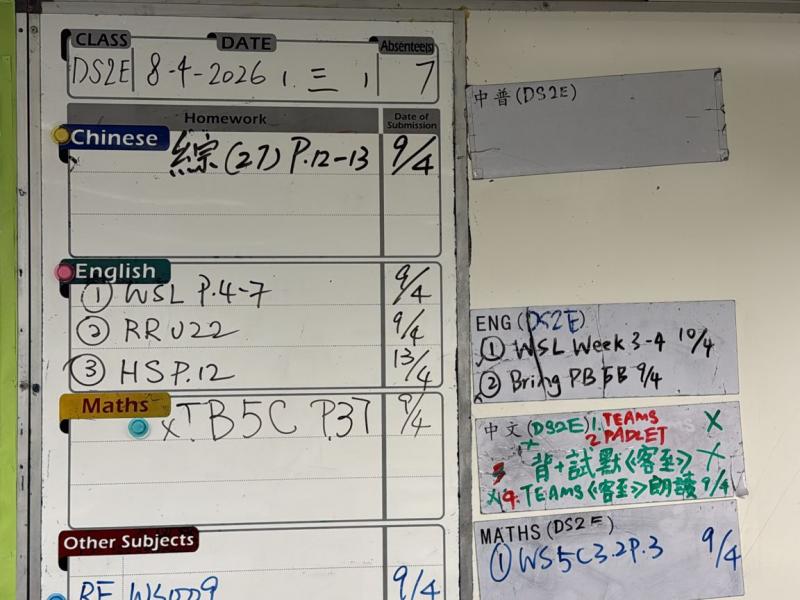 CLASS DATE Absentee(s)
DS2E 8-4-2026 1. 三 1 7
Homework Date of Submission
Chinese
綜(27) P.12-13 9/4
English
① WSL P.4-7 9/4
② RR U22 9/4
③ HS P.12 13/4
Maths
XT.B5C P.37 9/4
Other Subjects
RE WS009 9/4
中普(DS2E)
ENG (DS2E)
① WSL Week 3-4 10/4
② Bring PB 5B 9/4
中文(DS2E) 1. TEAMS X
2. PADLET
3 背+試默《客至》 X
X 4. TEAMS《客至》朗讀 9/4
MATHS (DS2E)
① WS 5C3.2P.3 9/4